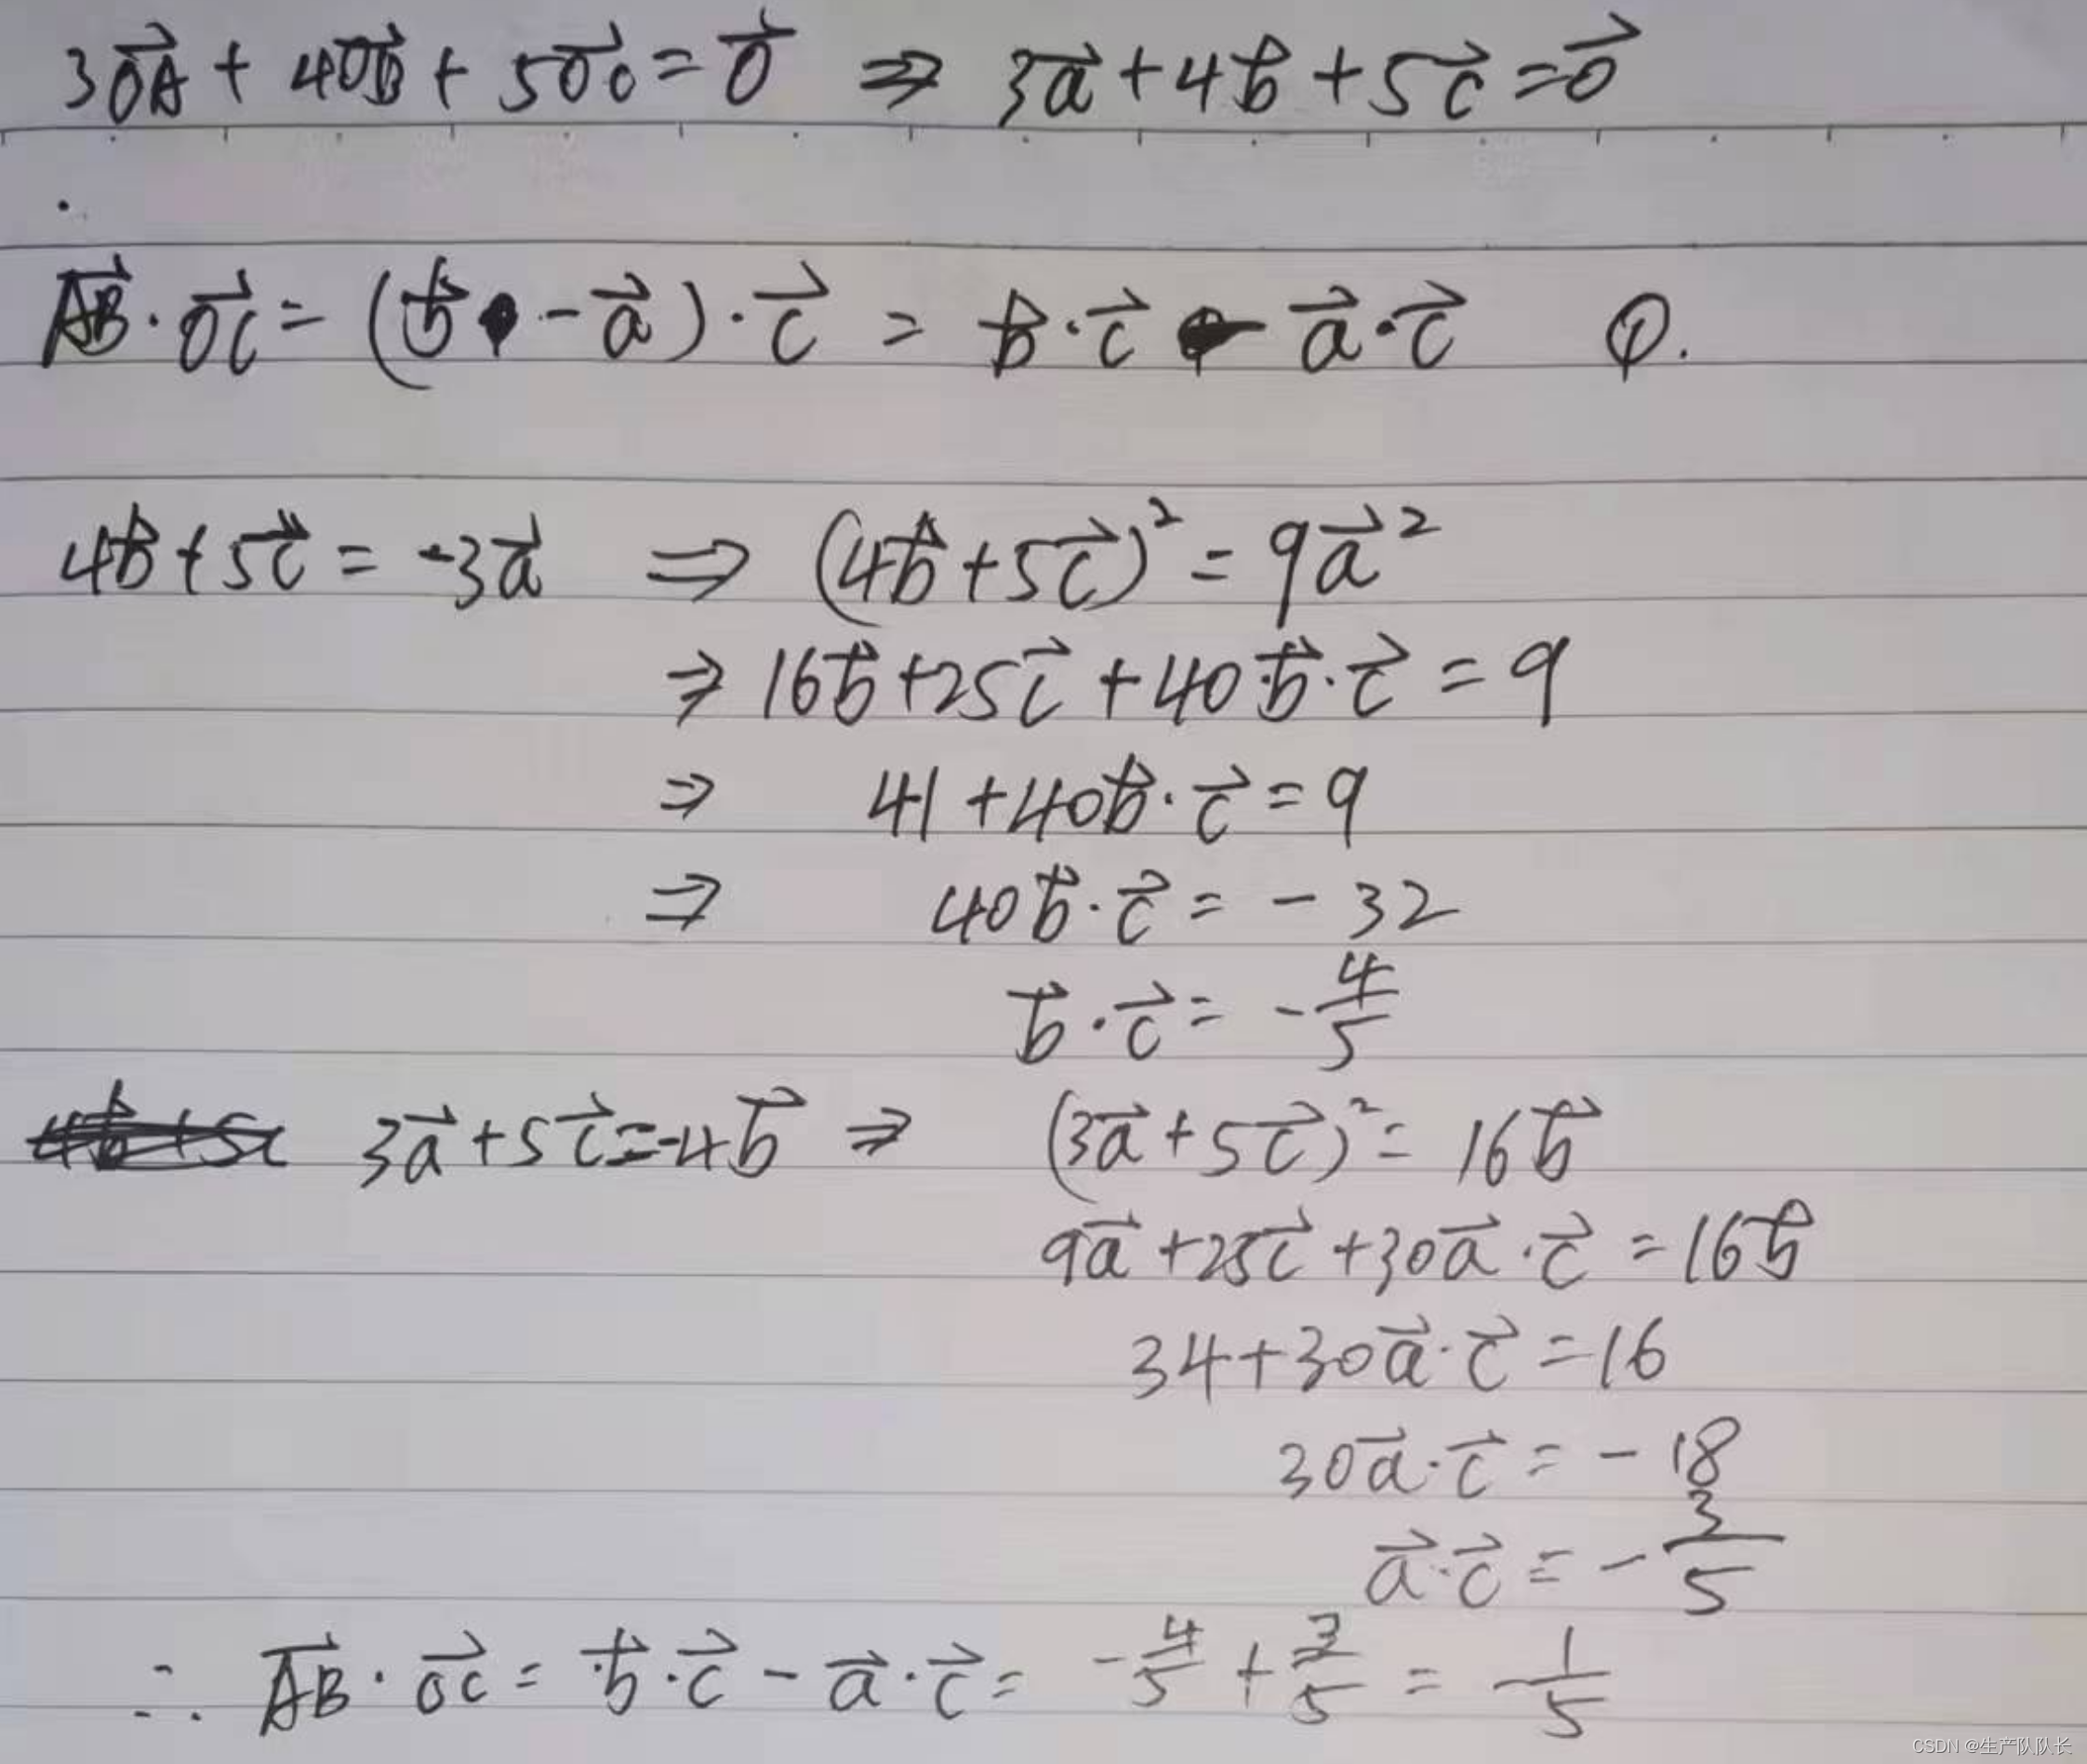 3\vec{OA} + 4\vec{OB} + 5\vec{OC} = \vec{0} ⇒ 3\vec{a} + 4\vec{b} + 5\vec{c} = \vec{0}
\vec{AB}·\vec{OC} = (\vec{b} - \vec{a})·\vec{c} = \vec{b}·\vec{c} - \vec{a}·\vec{c} ①.
4\vec{b} + 5\vec{c} = -3\vec{a} ⇒ (4\vec{b} + 5\vec{c})² = 9\vec{a}²
⇒ 16\vec{b} + 25\vec{c} + 40\vec{b}·\vec{c} = 9
⇒ 41 + 40\vec{b}·\vec{c} = 9
⇒ 40\vec{b}·\vec{c} = -32
\vec{b}·\vec{c} = -4/5
3\vec{a} + 5\vec{c} = -4\vec{b} ⇒ (3\vec{a} + 5\vec{c})² = 16\vec{b}
9\vec{a} + 25\vec{c} + 30\vec{a}·\vec{c} = 16\vec{b}
34 + 30\vec{a}·\vec{c} = 16
30\vec{a}·\vec{c} = -18
\vec{a}·\vec{c} = -3/5
∴ \vec{AB}·\vec{OC} = \vec{b}·\vec{c} - \vec{a}·\vec{c} = -4/5 + 3/5 = -1/5
CSDN @生产队队长